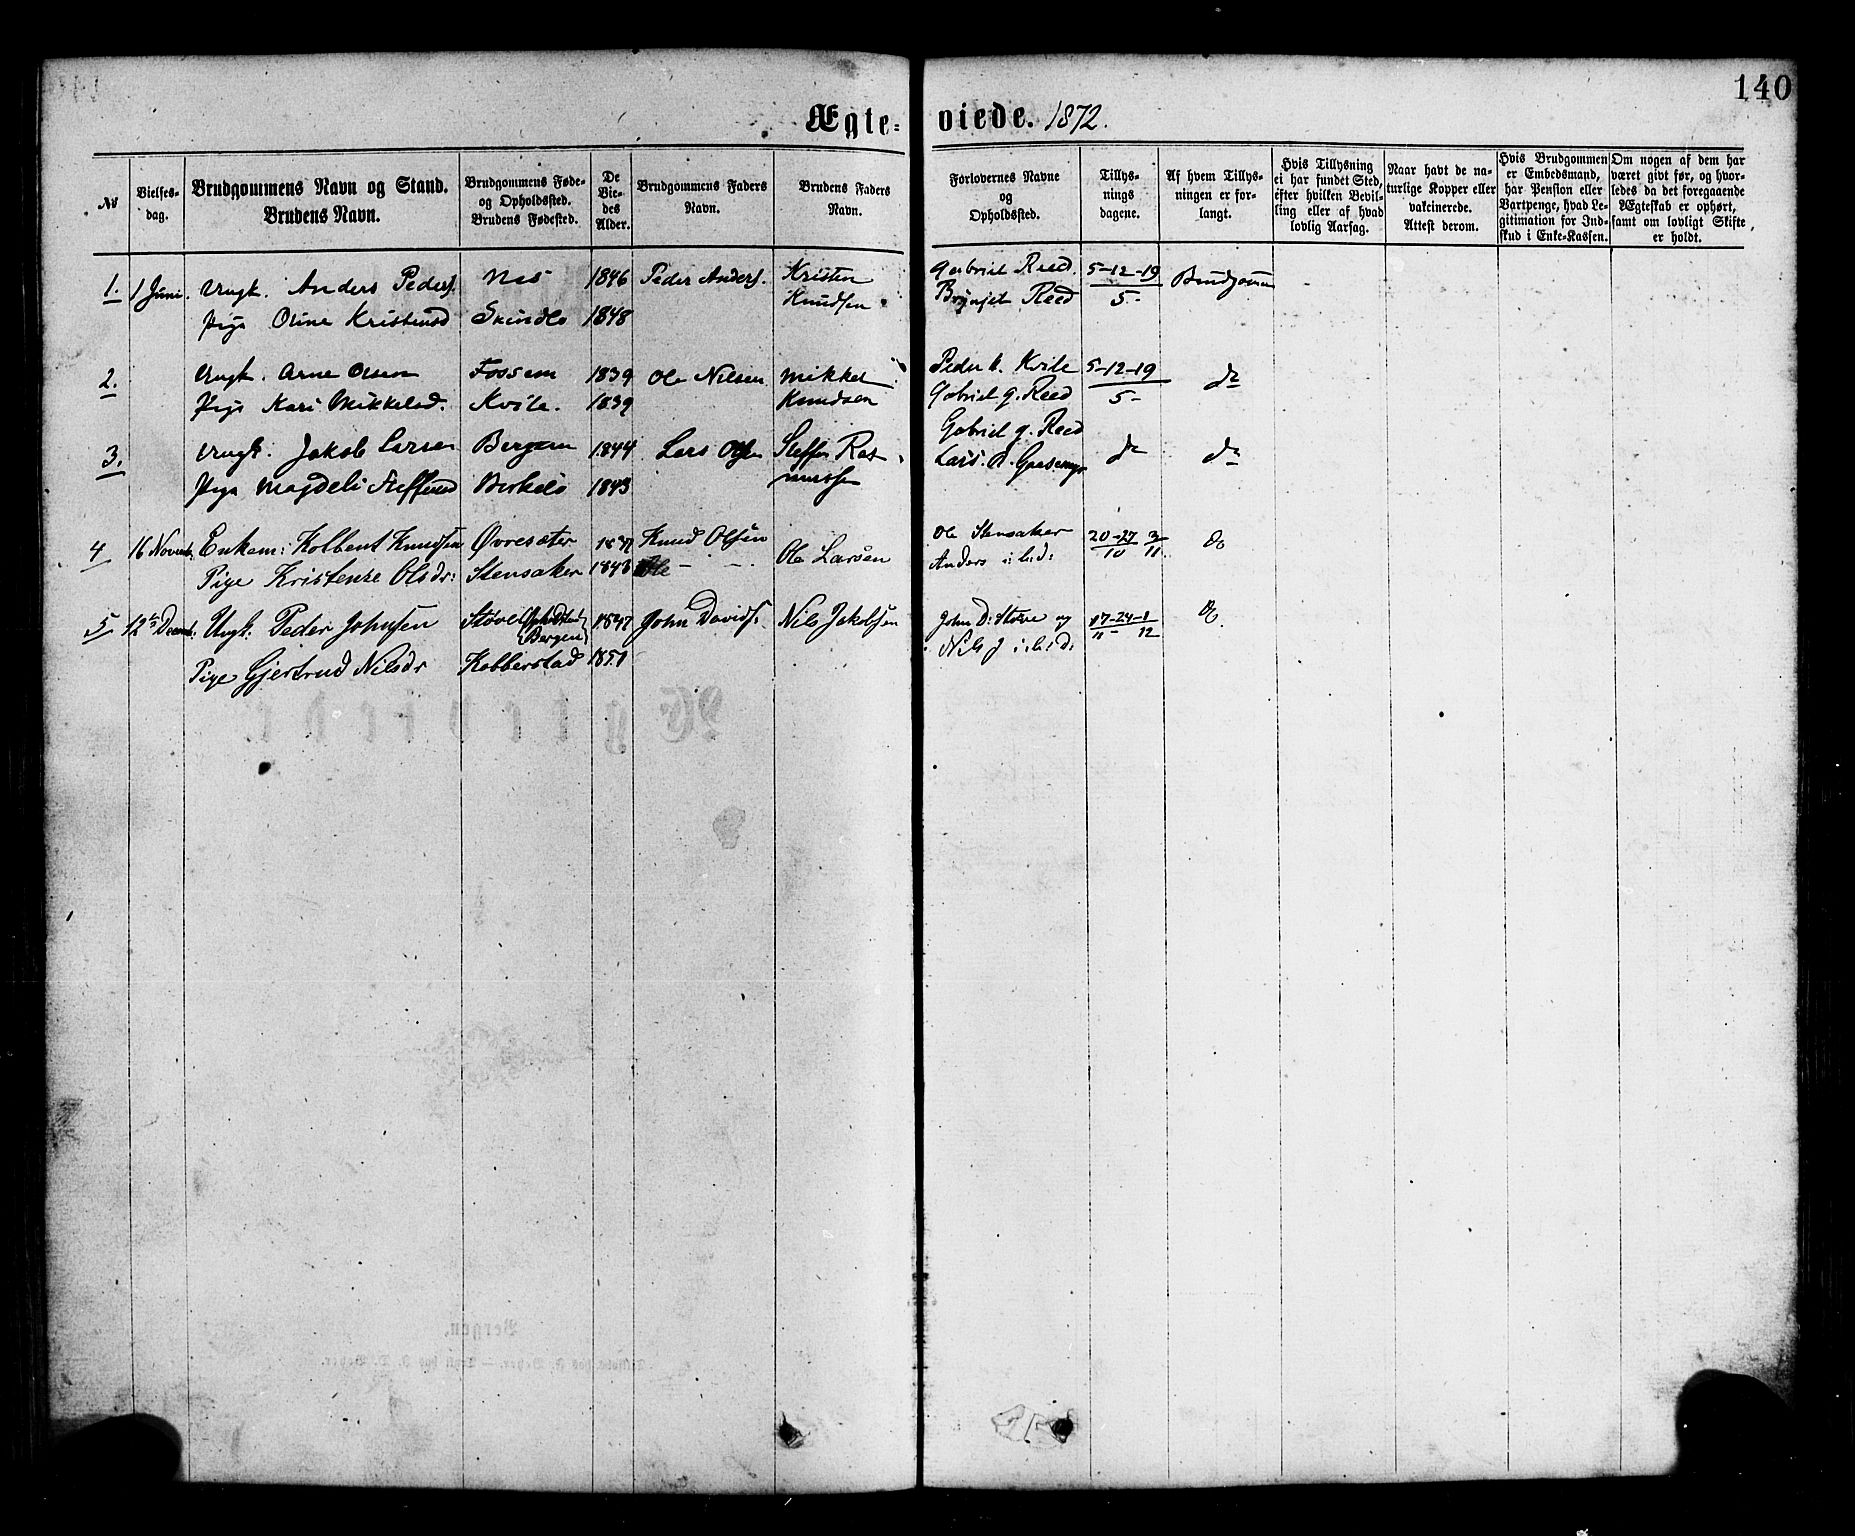 140
Ægte- viede. 1872.
No
Vielses-
dag.
Brudgommens Navn og Stand.
Brudens Navn.
Brudgommens Føde-
og Opholdssted.
Brudens Fødested.
De
Vie-
des
Alder.
Brudgommens Faders
Navn.
Brudens Faders
Navn.
Forlovernes Navne
og
Opholdssted.
Tillys-
nings
dagene.
Af hvem Tillys-
ningen er for-
langt.
Hvis Tillysning
ei har fundet Sted,
efter hvilken Bevil-
ling eller af hvad
lovlig Aarsag.
Naar havt de na-
turlige Kopper eller
vakcinerede.
Attest derom.
Hvis Brudgommen
er Embedsmand,
har Pension eller
Vartpenge, hvad Le-
gitimation for Ind-
skud i Enke-Kassen.
Om nogen af dem har
været givt før, og hvor-
ledes da det foregaaende
Ægteskab er ophørt,
samt om lovligt Skifte
er holdt.
1. 1 Juni. Ungk. Anders Peders. Nes 1846 Peder Anders. Kristen Gabriel Reed. 5-12-19 Brudgommen
Knudsen Brynjel Reed 5-
Pige Oline Kristensd 1848
2. Ungk. Arne Olsen Fossem 1839 Ole Nilsen Mikkel Peder k. Kvile 5-12-19 do
Pige Kari Mikkelsd. Kvile. 1839 Knudsen Gabriel g. Reed 5-
3. Ungk. Jakob Larsen Bergem 1844 Lars Olsen Steffen Ras- Gabriel g. Reed do do
Lars. R.
Pige Magdeli Steffensd Birkelo 1843 mussen
4 16 Novemb. Enkem: Kolbent Knudsen Øvresæter Knud Olsen Ole Larsen Ole Stensaker 20-27 3 do
Pige Kristense Olsdr: Stensaker 1843 Ole - - Anders ibid: 10 11.
5 12te Decemb: Ungk: Peder Johnsen Støve (Opholdsted Bergen) 1847 John Davids. Nils Jakobsen John D: Støve og 17-24-1 do.
Nils J ibid: 11- 12
Pige Gjertrud Nilsdr Kobberstad 1851